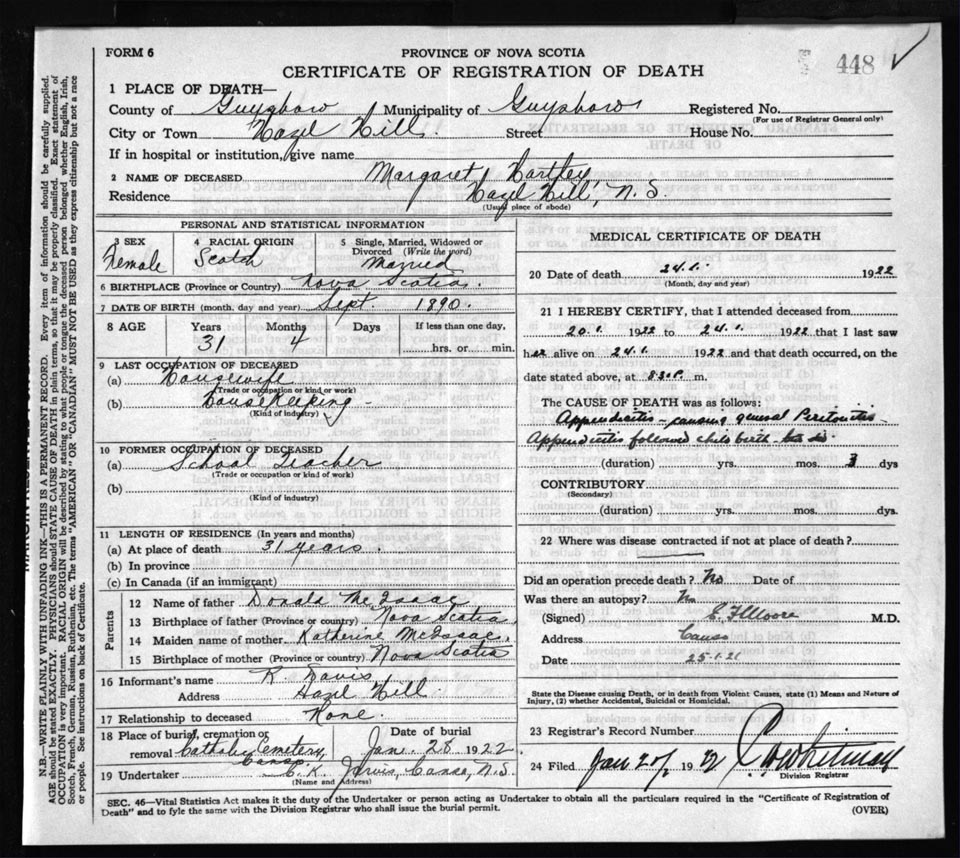 FORM 6
PROVINCE OF NOVA SCOTIA
448
CERTIFICATE OF REGISTRATION OF DEATH
1 PLACE OF DEATH—
County of Guysboro Municipality of Guysboro Registered No.
(For use of Registrar General only)
City or Town Hazel Hill. Street House No.
If in hospital or institution, give name
2 NAME OF DECEASED Margaret Hartley,
Residence Hazel Hill, N.S.
(Usual place of abode)
PERSONAL AND STATISTICAL INFORMATION
3 SEX
Female
4 RACIAL ORIGIN
Scotch
5 Single, Married, Widowed or Divorced (Write the word)
Married
6 BIRTHPLACE (Province or Country) Nova Scotia.
7 DATE OF BIRTH (month, day and year) Sept 1890.
8 AGE Years Months Days If less than one day,
31 4 hrs. or min.
9 LAST OCCUPATION OF DECEASED
(a) Housewife
(Trade or occupation or kind or work)
(b) Housekeeping
(Kind of industry)
10 FORMER OCCUPATION OF DECEASED
(a) School Teacher
(Trade or occupation or kind or work)
(b)
(Kind of industry)
11 LENGTH OF RESIDENCE (In years and months)
(a) At place of death 31 years.
(b) In province
(c) In Canada (if an immigrant)
Parents
12 Name of father Donald McIsaac
13 Birthplace of father (Province or country) Nova Scotia.
14 Maiden name of mother Katherine McIsaac.
15 Birthplace of mother (Province or country) Nova Scotia
16 Informant's name R Davis
Address Hazel Hill.
17 Relationship to deceased None.
18 Place of burial, cremation or removal Catholic Cemetery Canso.
Date of burial
Jan. 28 1922
19 Undertaker C.K. Jarvis, Canso, N.S.
(Name and Address)
MEDICAL CERTIFICATE OF DEATH
20 Date of death 24.1. 1922
(Month, day and year)
21 I HEREBY CERTIFY, that I attended deceased from
20.1. 1922 to 24.1. 1922 that I last saw
her alive on 24.1. 1922 and that death occurred, on the
date stated above, at m.
The CAUSE OF DEATH was as follows:
Appendicitis - causing general Peritonitis
Appendicitis followed child birth
(duration) yrs. mos. 3 dys
CONTRIBUTORY
(Secondary)
(duration) yrs. mos. dys.
22 Where was disease contracted if not at place of death?
Did an operation precede death? No Date of
Was there an autopsy? No
(Signed) M.D.
Address Canso
Date 25-1-21
State the Disease causing Death, or in death from Violent Causes, state (1) Means and Nature of
Injury, (2) whether Accidental, Suicidal or Homicidal.
23 Registrar's Record Number
24 Filed Jan 192
Division Registrar
SEC. 46—Vital Statistics Act makes it the duty of the Undertaker or person acting as Undertaker to obtain all the particulars required in the "Certificate of Registration of
Death" and to fyle the same with the Division Registrar who shall issue the burial permit.
(OVER)
N.B.—WRITE PLAINLY WITH UNFADING INK—THIS IS A PERMANENT RECORD. Every item of information should be carefully supplied.
AGE should be stated EXACTLY. PHYSICIANS should STATE CAUSE OF DEATH in plain terms, so that it may be properly classified. Exact statement of
OCCUPATION is very important. RACIAL ORIGIN will be described by stating to what people or tongue the deceased person belonged whether English, Irish,
Scotch, French, German, Russian, Ruthenian, etc. The terms "AMERICAN" OR "CANADIAN" MUST NOT BE USED as they express citizenship but not a race
or people. See instructions on back of Certificate.